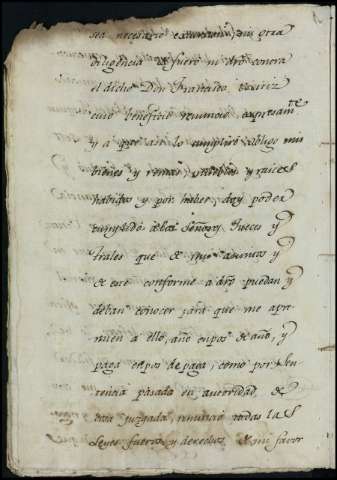 sea necesario excursion, ni otra
diligencia de fuero ni dro contra
el dicho Don Francisco, 
cuio beneficio renuncio expresamte
y a que asi lo cumpliré obligo mis
bienes y rentas, muebles y raices
havidos y por haber, doy poder
cumplido a los Señores Jueces y
trales que de mis causas y
de esto conforme a dro puedan y
deban conocer para que me apre
mien a ello, año enpos de año, y
paga enpos de paga, como por Sen
tencia pasada en autoridad, de
cosa juzgada, renuncio todas las
Leyes fueros y derechos de mi favor